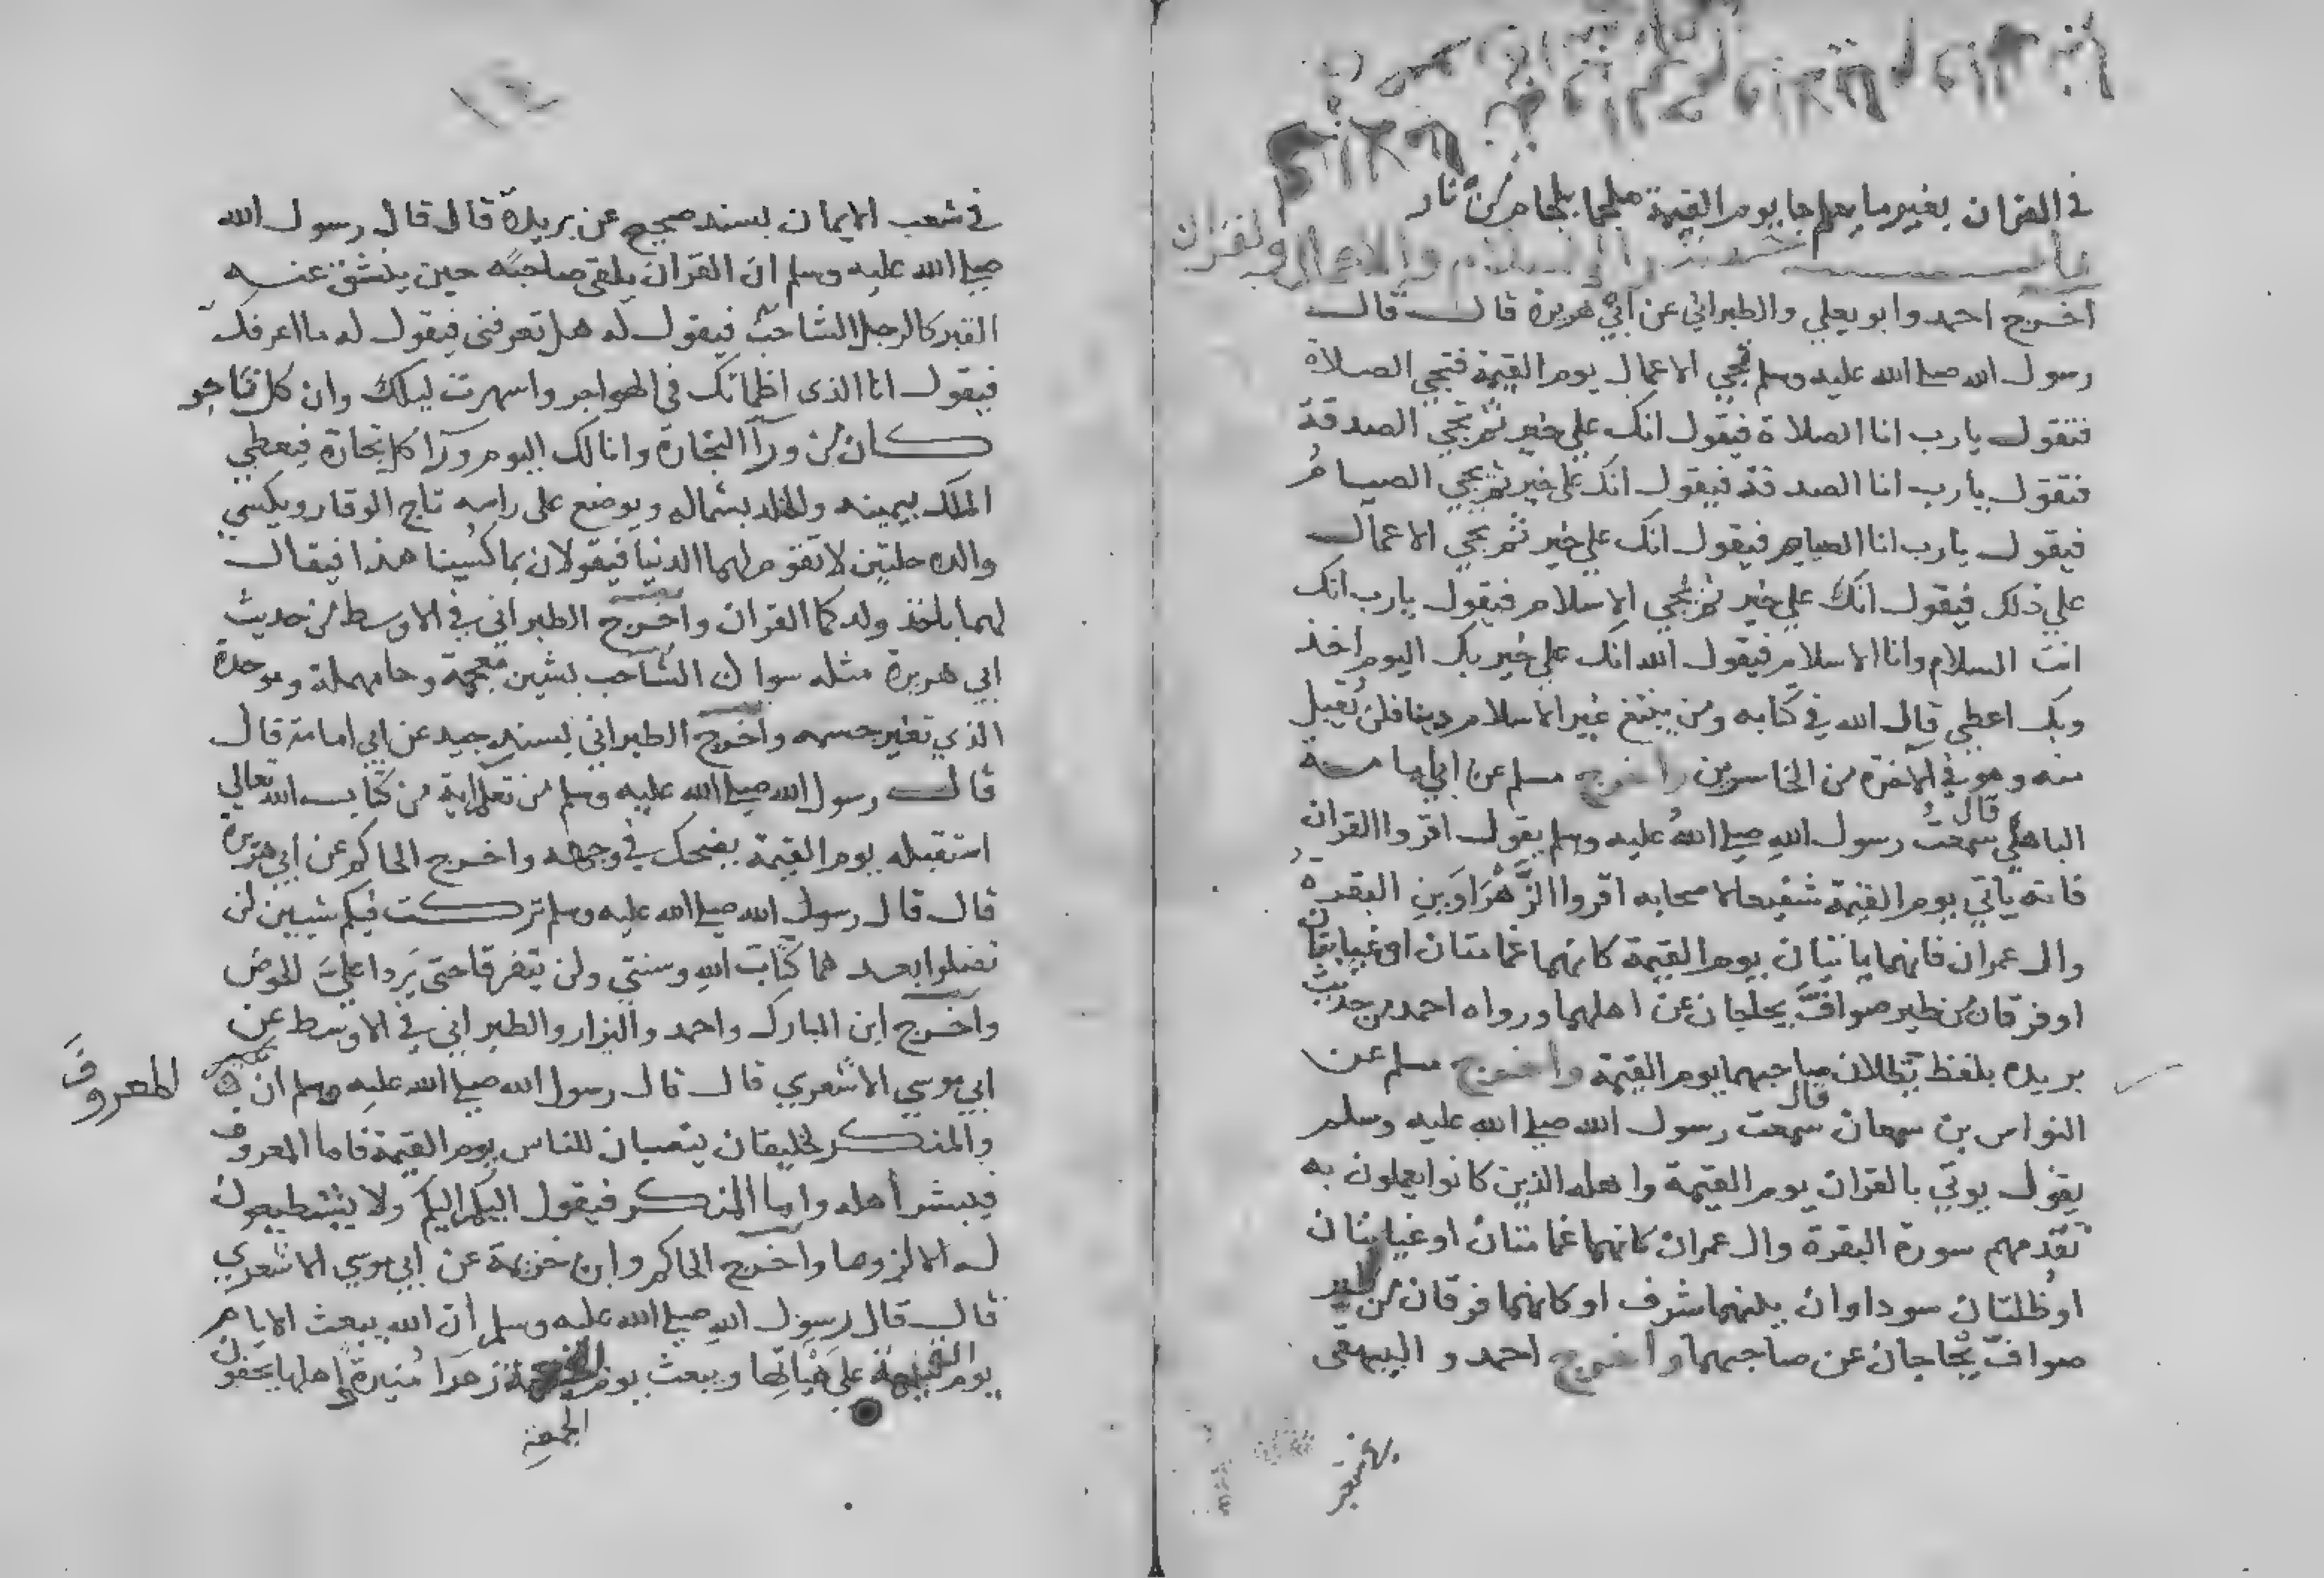 في القران بغير ما يعلم جا يوم القيمة ملجما بلجام من نار
باب
اخرج احمد وابو يعلي والطبراني عن ابي هريرة قال قال
رسول الله صلى الله عليه وسلم تجي الاعمال يوم القيمة فتجي الصلاة
فتقول يارب انا الصلاة فيقول انك علي خير ثم تجي الصدقة
فتقول يارب انا الصدقة فيقول انك على خير ثم يجي الصيام
فيقول يارب انا الصيام فيقول انك علي خير ثم يجي الاعمال
علي ذلك فيقول انك علي خير ثم يجي الاسلام فيقول يارب انك
انت السلام وانا الاسلام فيقول الله انك علي خير بك اليوم اخذ
وبك اعطي قال الله في كتابه ومن يبتغ غير الاسلام دينا فلن يقبل
منه وهو في الاخرة من الخاسرين واخرج مسلم عن ابي امامة
الباهلي قال سمعت رسول الله صلى الله عليه وسلم يقول اقروا القران
فانه ياتي يوم القيمة شفيعا لاصحابه اقروا الزهراوين البقرة
وال عمران فانهما ياتيان يوم القيمة كانهما غمامتان او غيابتان
او فرقان من طير صواف يحاجان عن اهلهما ورواه احمد من حديث
بريده بلفظ تظلان صاحبهما يوم القيمة واخرج مسلم عن
النواس بن سمعان قال سمعت رسول الله صلى الله عليه وسلم
يقول يوتي بالقران يوم القيمة واهله الذين كانوا يعملون به
تقدمهم سورة البقرة وال عمران كانهما غمامتان او غيابتان
او ظلتان سوداوان بينهما شرف او كانهما فرقان من طير
صواف يحاجان عن صاحبهما واخرج احمد و البيهقي
في شعب الايمان بسند صحيح عن بريدة قال قال رسول الله
صلى الله عليه وسلم ان القران يلقى صاحبه حين ينشق عنه
القبر كالرجل الشاحب فيقول له هل تعرفني فيقول له ما اعرفك
فيقول انا الذى اظمانك في الهواجر واسهرت ليلك وان كل تاجر
كان من ورآ التجارة وانا لك اليوم ورآ كل تجارة فيعطي
الملك بيمينه والخلد بشماله ويوضع على راسه تاج الوقار ويكسي
والده حلتين لا تقوم لهما الدنيا فيقولان بما كسينا هذا فيقال
لهما باخذ ولدكما القران واخرج الطبراني في الاوسط من حديث
ابي هريرة مثله سوا ن الشاحب بشين معجمة وحا مهملة وموحدة
الذي تغير جسمه واخرج الطبراني بسند جيد عن ابي امامة قال
قال رسول الله صلى الله عليه وسلم من تعلم اية من كتاب الله تعالي
استقبلته يوم القيمة يضحك في وجهه واخرج الحاكم عن ابي هريرة
قال قال رسول الله صلى الله عليه وسلم تركت فيكم شيين لن
تضلوا بعد هما كتاب الله وسنتي ولن يتفرقا حتى يردا علي الحوض
واخرج ابن المبارك واحمد والبزار والطبراني في الاوسط عن
ابي موسي الاشعري قال قال رسول الله صلى الله عليه وسلم ان
المعروف
والمنكر لخليقان ينصبان للناس يوم القيمة فاما المعروف
فيبشر اهله واما المنكر فيقول اليكم اليكم ولا يستطيعون
له الا لزوما واخرج الحاكم وابن خزيمة عن ابي موسي الاشعري
قال قال رسول الله صلى الله عليه وسلم ان الله يبعث الايام
يوم القيمة علي هياتها ويبعث يوم زهرا منيرة اهلها يحفون
الجمعة